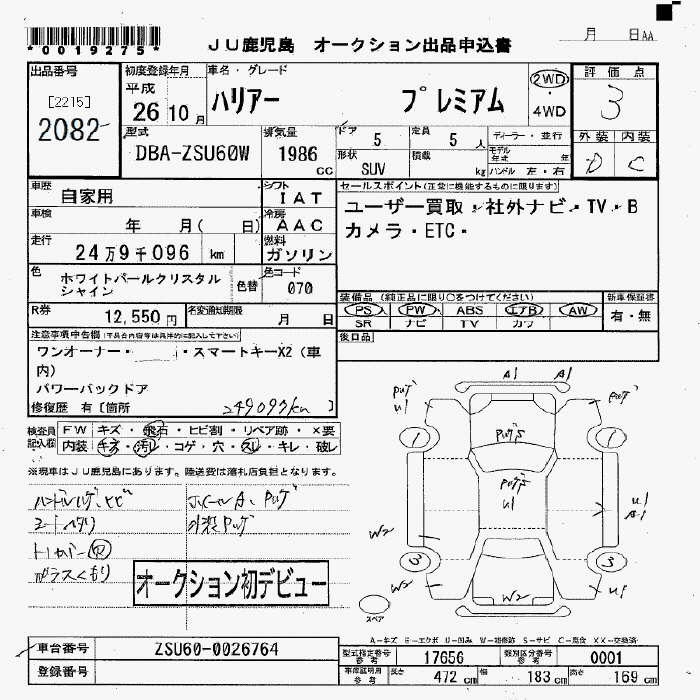 *0019275*
JU鹿児島 オークション出品申込書
月 日AA
出品番号
[2215]
2082
初度登録年月
平成
26 10 月
車名・グレード
ハリアー プレミアム
2WD
・
4WD
評価点
3
外装 内装
D C
型式
DBA-ZSU60W
排気量
1986
CC
ドア
5
定員
5 人
ディーラー・並行
形状
SUV
積載
kg
モデル年式 年
ハンドル 左・右
車歴
自家用
シフト
IAT
車検
年 月( 日)
冷房
AAC
走行
24万9千096 km
燃料
ガソリン
色
ホワイトパールクリスタル
シャイン
色替
色コード
070
R券
12,550円
名変通知期限
月 日
セールスポイント(正常に機能するものに限ります)
ユーザー買取・社外ナビ・TV・B
カメラ・ETC・
装備品(純正品に限り○をつけてください)
PS PW ABS エアB AW
SR ナビ TV カワ
新車保証書
有・無
後日品
注意事項申告欄
ワンオーナー・ ・スマートキーX2(車
内)
パワーバックドア
修復歴 有 [箇所 249097km ]
検査員
記入欄
FW キズ・飛石・ヒビ割・リペア跡・X要
内装 キズ・汚レ・コゲ・穴・スレ・キレ・破レ
※現車はJU鹿児島にあります。陸送費は落札店負担となります。
ハンドルハゲ、ヒビ
ホイールA、PWゲ
トノカバー
ガラスくもり
オークション初デビュー
A1 A1
U1
1 1
U1
U1
W2
3 3
W2 W2 U1
スペア
A-キズ E-エクボ U-凹み W-補修跡 S-サビ C-腐食 XX-交換済
車台番号
ZSU60-0026764
登録番号
型式指定番号
参考
17656
類別区分番号
参考
0001
車庫証明用
参考
長さ
472 cm
幅
183 cm
高さ
169 cm